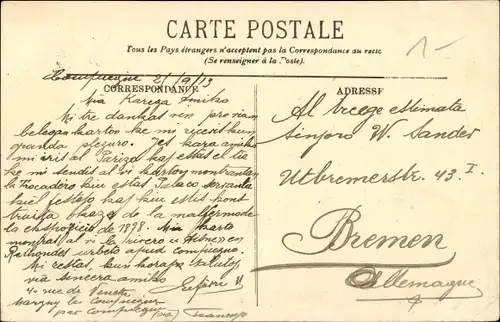 CARTE POSTALE
Tous les Pays étrangers n'acceptent pas la Correspondance au recto
(Se renseigner à la Poste).
Compiegne 21/9/13
CORRESPONDANCE
ADRESSE
Mia Karega Amiko
Mi tre dankas vin pro vian
belegan karton ke mi ricevis kun
granda plezuro. Jes kara amiko
mi iris al Parizo kaj estas el tie
ke mi sendis al vi karton montrantan
la Trocadéro kiu estas Palaco servanta
kiel festejo kaj kiu estis kons
truita okaze de la malfermo
de
la ekspozicio de 1878.
karto
montras al vi la rivero
en
Rethondes urbeto apud Compiegne.
Mi restas, kun koraj salutoj
via sincera amiko
4 rue de Venette
Margny les Compiegne
par Compiegne (Oise)
Al tre ege estimata
Sinjoro W. Sander
Utbremerstr. 43 I.
Bremen
Allemagne